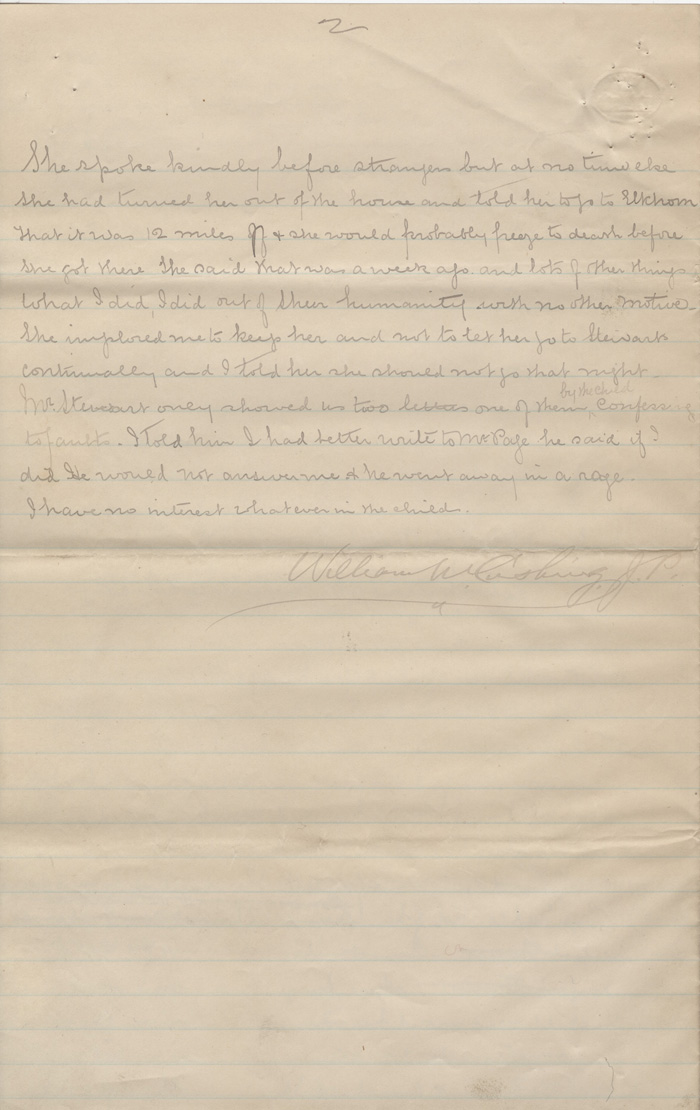 2
She spoke kindly before strangers but at no time else
She had turned her out of the house and told her to go to Elkhorn
that it was 12 miles & she would probably freeze to death before
She got there She said that was a week ago. and lots of other things
What I did, I did out of Sheer humanity with no other motive.
She implored me to keep her and not to let her go to Stewarts
continually and I told her she should not go that night
by the child
Mr. Stewart only showed us two letters one of them, Confessing
to faults. I Told him I had better write to Mr Page he said if I
did He would not answer me & he went away in a rage.
I have no interest whatever in the child.
William Cushing. J. P.